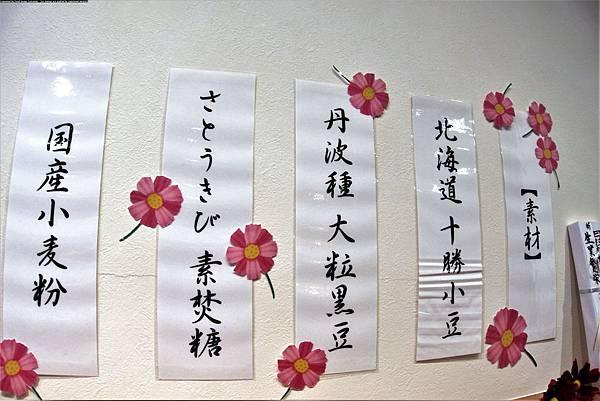 【素材】
北海道 十勝小豆
丹波種 大粒黒豆
さとうきび 素焚糖
国産小麦粉